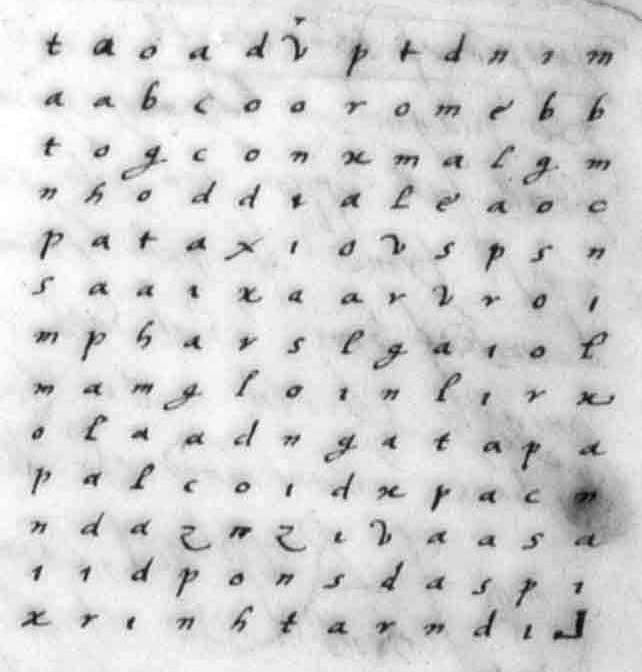 t a o a d v p t d n i m
a a b c o o r o m e b b
t o g c o n x m a l g m
n h o d d i a l e a o c
p a t a x i o v s p s n
s a a i x a a r v r o i
m p h a r s l g a i o l
m a m g l o i n l i r x
o l a a d n g a t a p a
p a l c o i d x p a c n
n d a z n z i v a a s a
i i d p o n s d a s p i
x r i n h t a r n d i ⅃